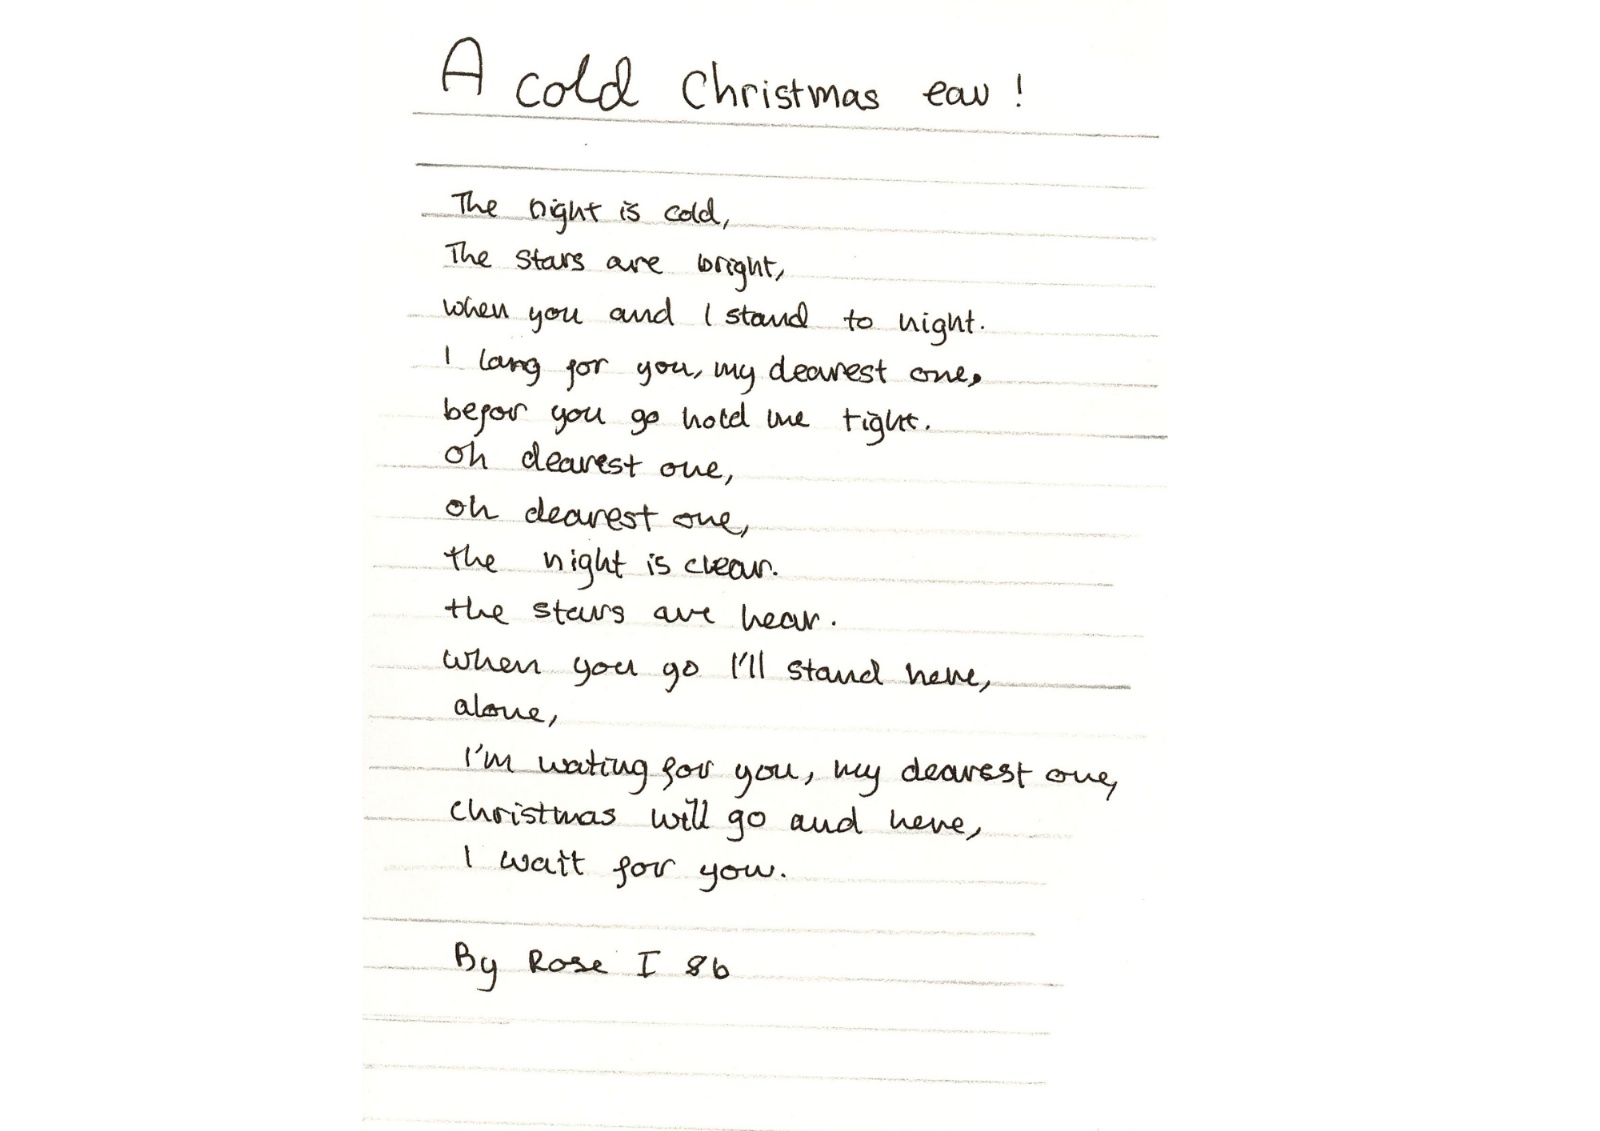 A cold Christmas eav!
The night is cold,
The stars are bright,
when you and I stand to night.
I lang for you, my dearest one,
befor you go hold me tight.
oh dearest one,
oh dearest one,
the night is clear.
the stars are hear.
when you go I'll stand here,
alone,
I'm wating for you, my dearest one,
christmas will go and here,
I wait for you.
By Rose I 8b